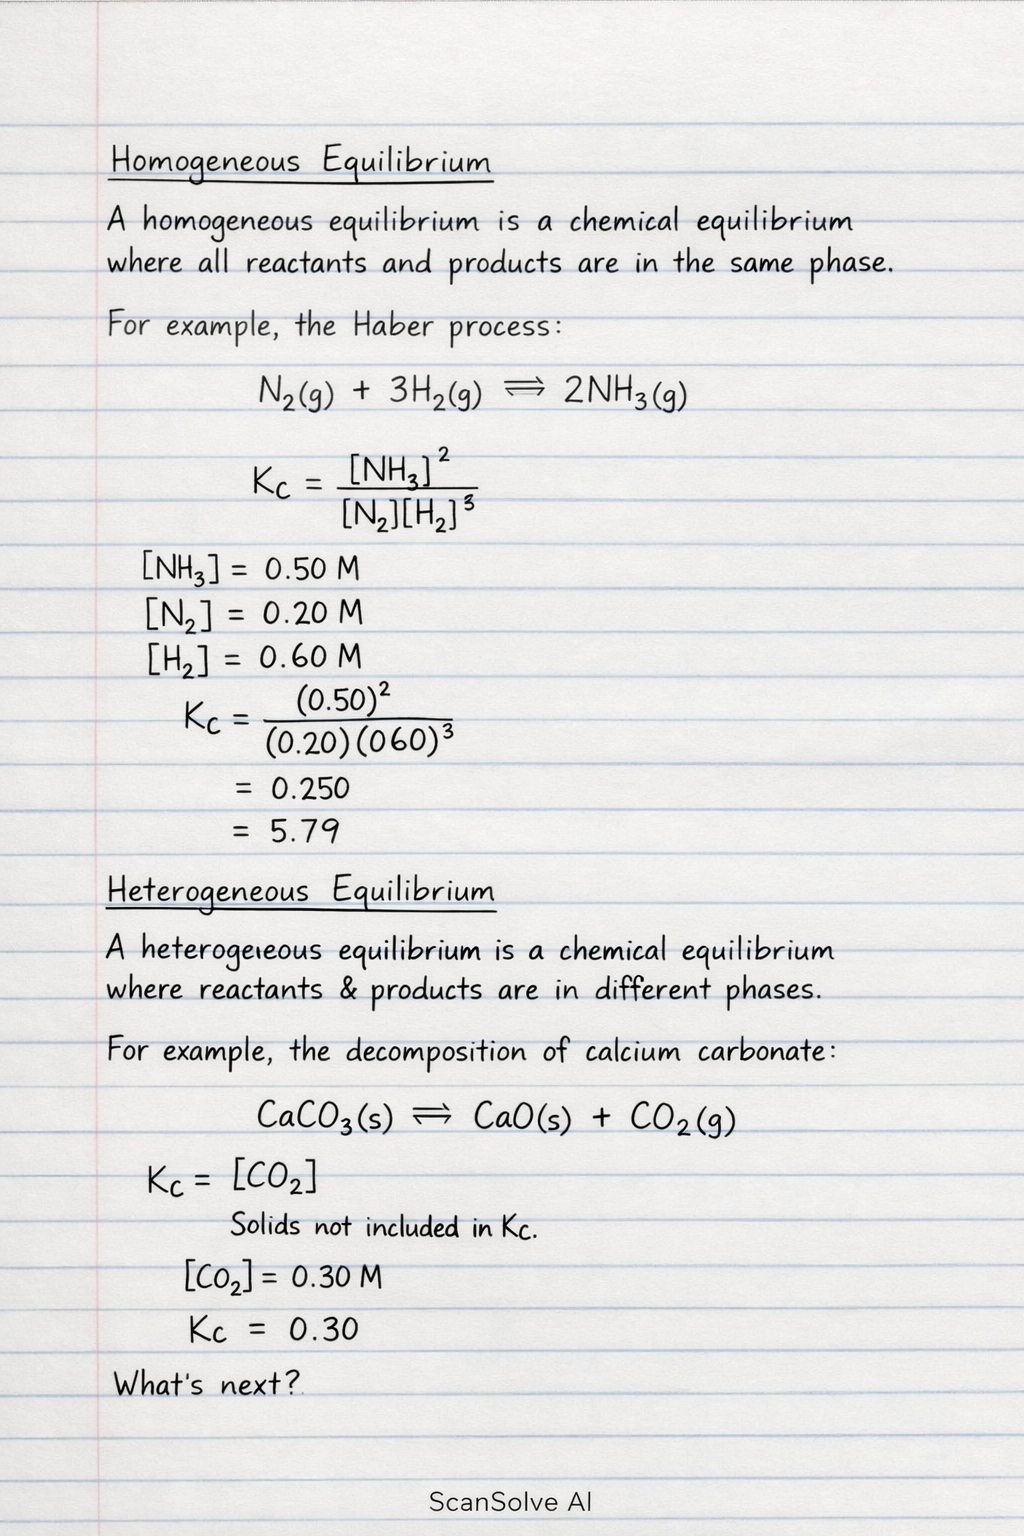 Homogeneous Equilibrium
A homogeneous equilibrium is a chemical equilibrium
where all reactants and products are in the same phase.
For example, the Haber process:
N₂(g) + 3H₂(g) ⇌ 2NH₃(g)
Kc = [NH₃]² / [N₂][H₂]³
[NH₃] = 0.50 M
[N₂] = 0.20 M
[H₂] = 0.60 M
Kc = (0.50)² / (0.20)(060)³
= 0.250
= 5.79
Heterogeneous Equilibrium
A heterogeıeous equilibrium is a chemical equilibrium
where reactants & products are in different phases.
For example, the decomposition of calcium carbonate:
CaCO₃(s) ⇌ CaO(s) + CO₂(g)
Kc = [CO₂]
Solids not included in Kc.
[CO₂] = 0.30 M
Kc = 0.30
What's next?
ScanSolve AI